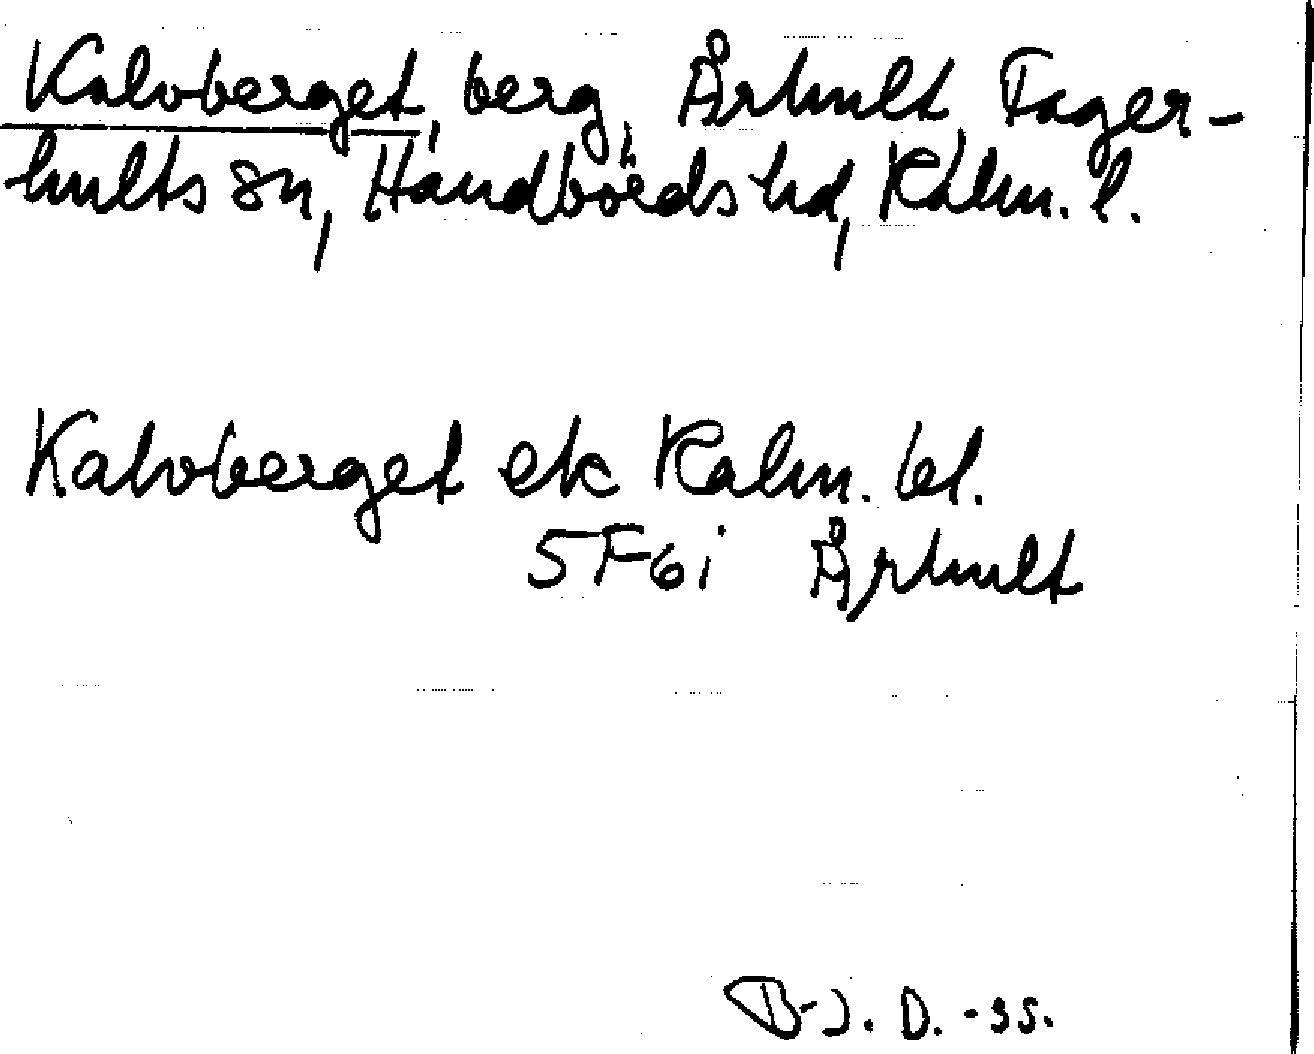 Kalvberget, berg, Århult, Fager-
hults sn, Handbörds hd, Kalm. l.
Kalvberget ek Kalm. bl.
5F6i Århult
B-J. D. -35.